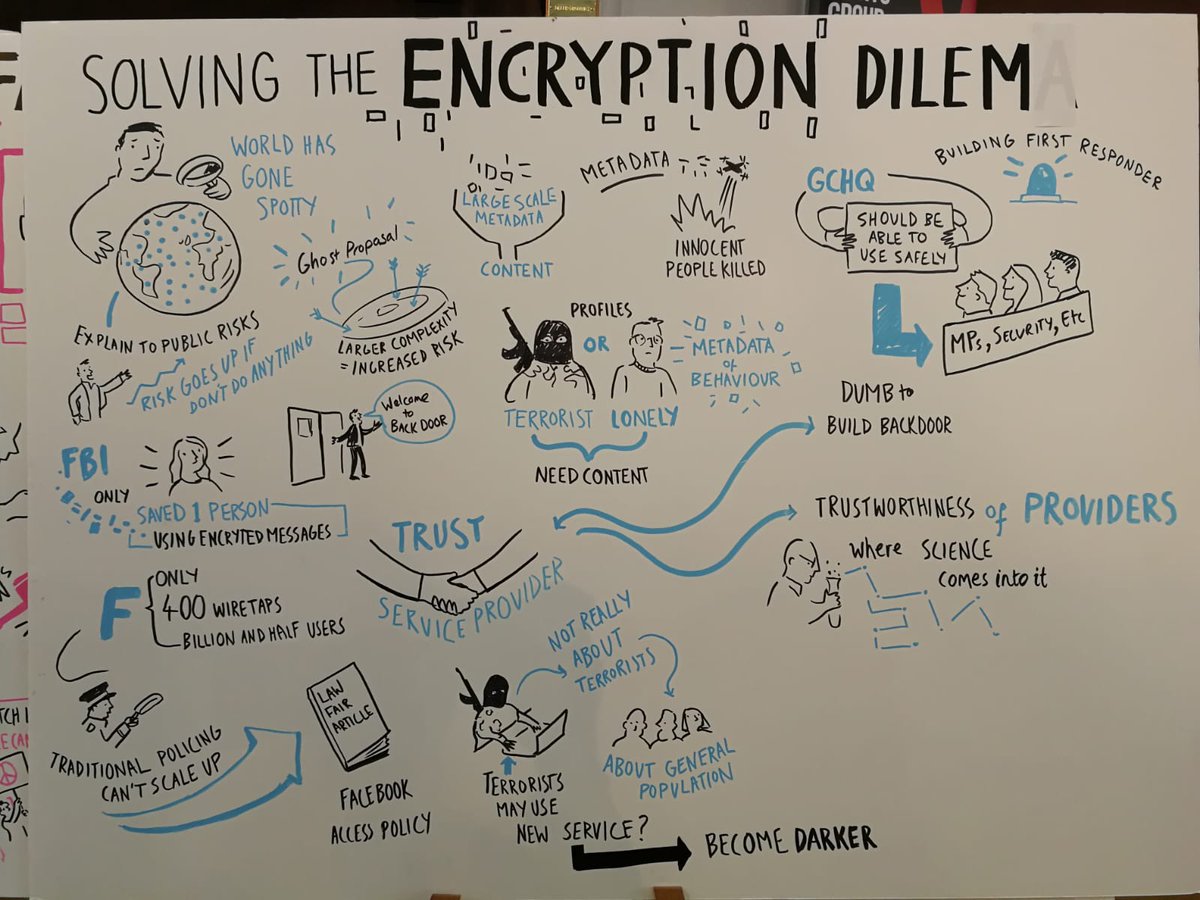 GROUP
SOLVING THE ENCRYPTION DILEMA
WORLD HAS
GONE
SPOTTY
EXPLAIN TO PUBLIC RISKS
RISK GOES UP IF
DON'T DO ANYTHING
Ghost Proposal
LARGER COMPLEXITY
= INCREASED RISK
Welcome
to
BACK DOOR
LARGE SCALE
METADATA
CONTENT
METADATA
INNOCENT
PEOPLE KILLED
PROFILES
OR
TERRORIST
LONELY
METADATA
of
BEHAVIOUR
NEED CONTENT
GCHQ
SHOULD BE
ABLE TO
USE SAFELY
BUILDING FIRST RESPONDER
MPs, SECURITY, Etc
DUMB to
BUILD BACKDOOR
TRUSTWORTHINESS of PROVIDERS
where SCIENCE
comes into it
FBI
ONLY
SAVED 1 PERSON
USING ENCRYTED MESSAGES
TRUST
SERVICE PROVIDER
F
ONLY
400 WIRETAPS
BILLION AND HALF USERS
TRADITIONAL POLICING
CAN'T SCALE UP
LAW
FAIR
ARTICLE
FACEBOOK
ACCESS POLICY
NOT REALLY
ABOUT
TERRORISTS
ABOUT GENERAL
POPULATION
TERRORISTS
MAY USE
NEW SERVICE?
BECOME DARKER